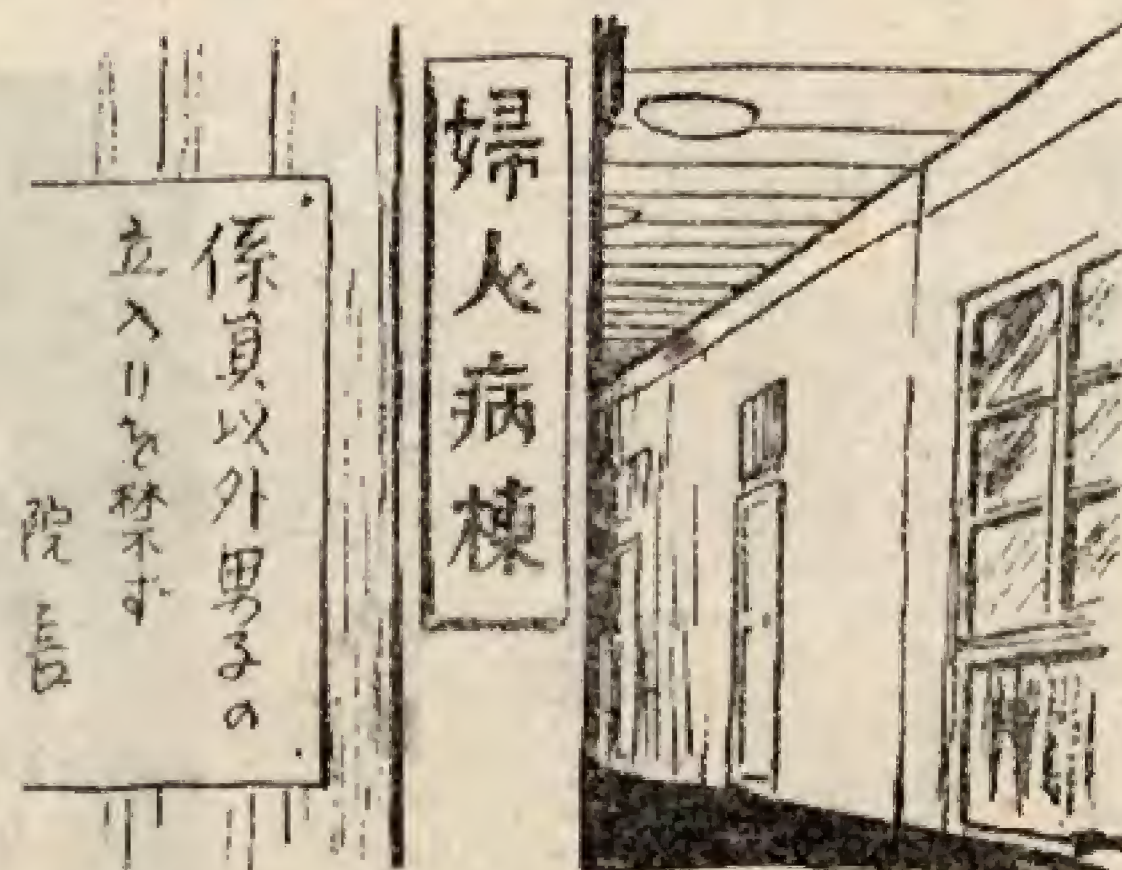 婦人病棟
係員以外男子の
立入りを禁ず
院長